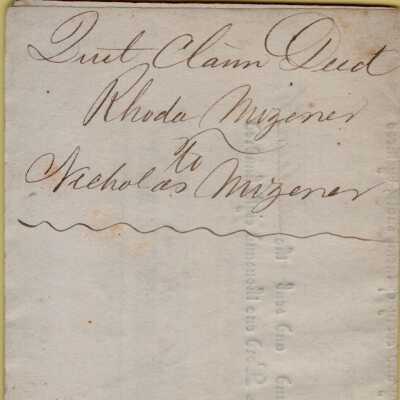 Quit Claim Deed
Rhoda Mizener
to
Nicholas Mizener